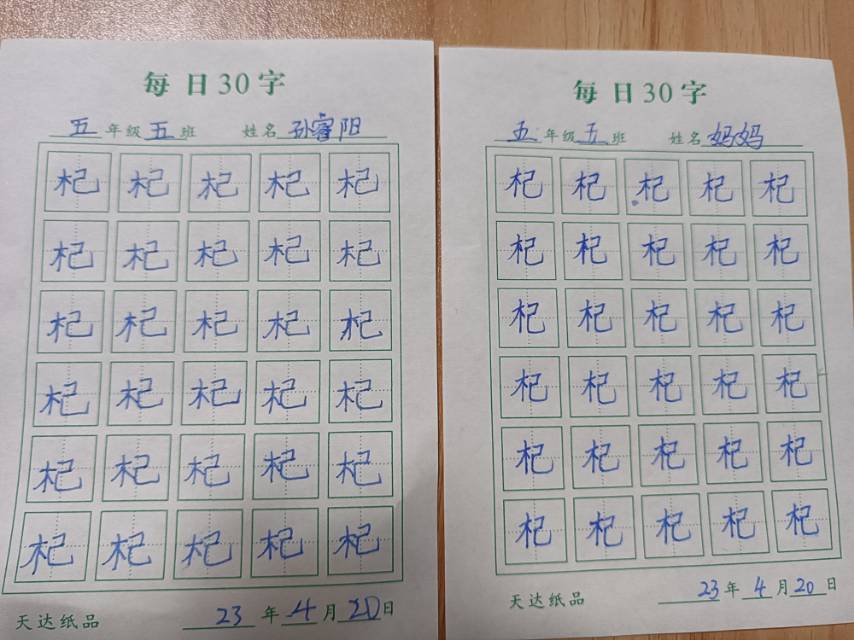 每日30字
五年级五班 姓名孙睿阳
杞 杞 杞 杞 杞
杞 杞 杞 杞 杞
杞 杞 杞 杞 杞
杞 杞 杞 杞 杞
杞 杞 杞 杞 杞
杞 杞 杞 杞 杞
天达纸品 23年4月20日
每日30字
五年级五班 姓名妈妈
杞 杞 杞 杞 杞
杞 杞 杞 杞 杞
杞 杞 杞 杞 杞
杞 杞 杞 杞 杞
杞 杞 杞 杞 杞
杞 杞 杞 杞 杞
天达纸品 23年4月20日